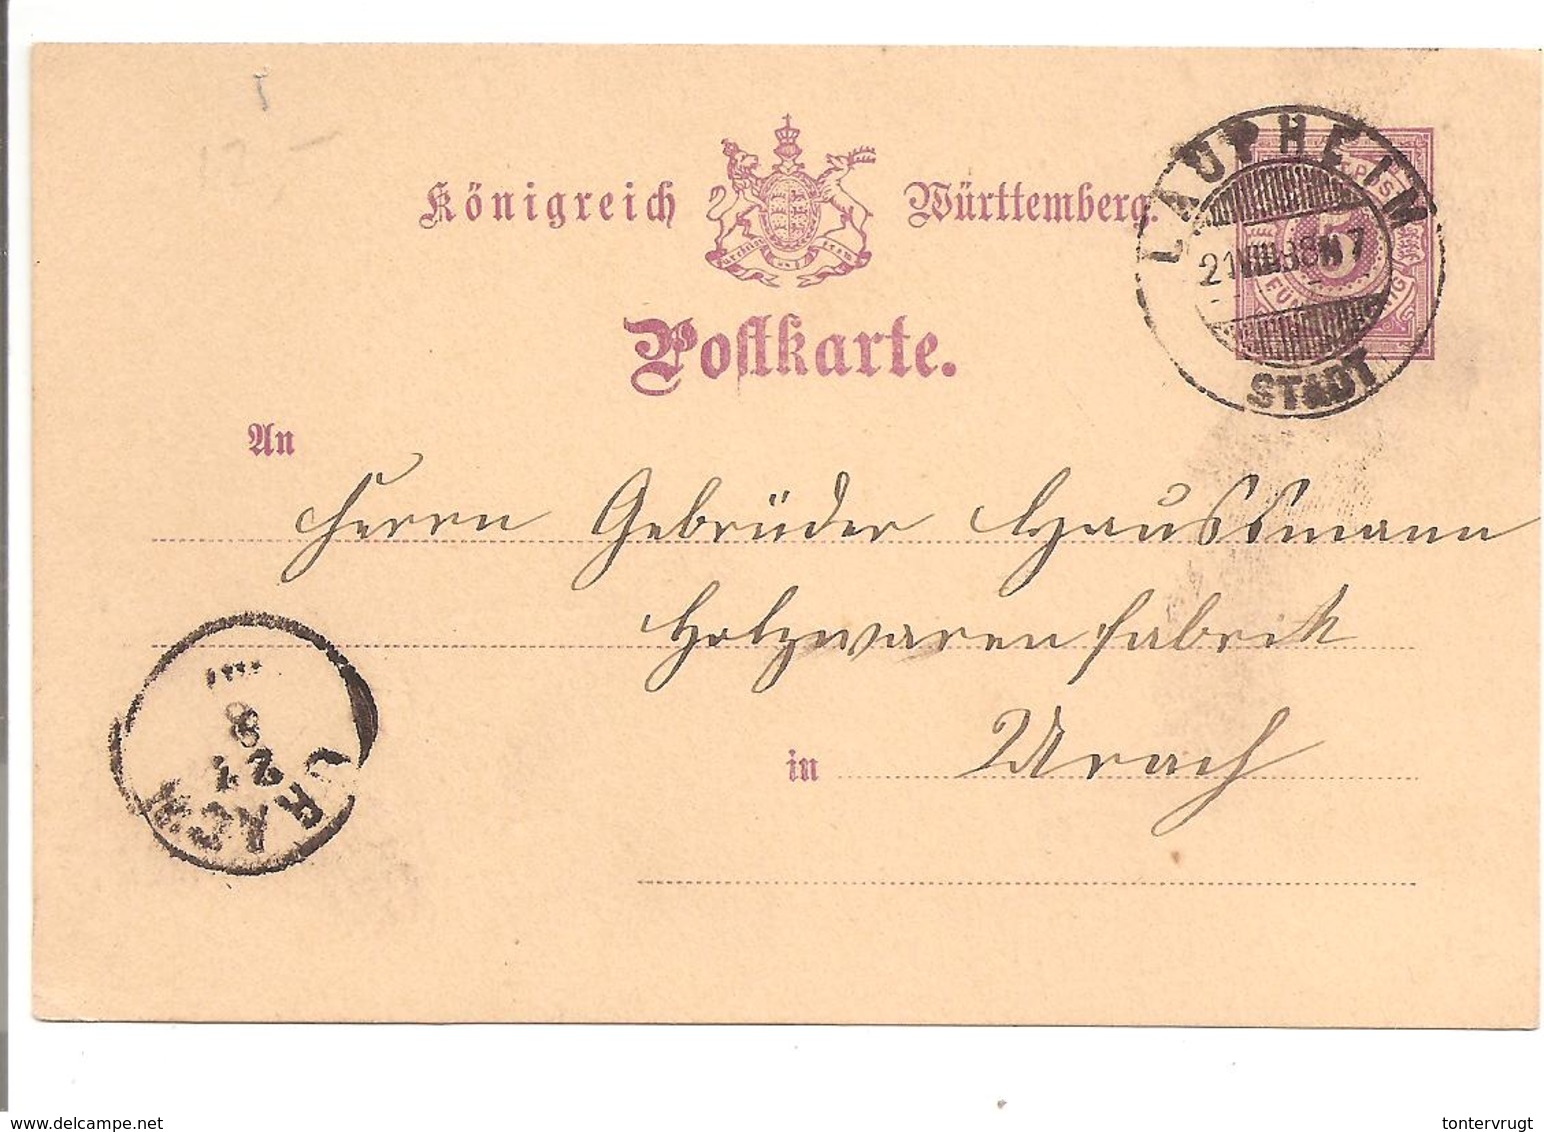 12.-
Königreich Württemberg.
Postkarte.
LAUPHEIM
STADT
FÜNF
An
Herrn Gebrüder Haussmann
Holzwarenfabrik
in Urach
URACH
21
8
delcampe.net
tontervrugt